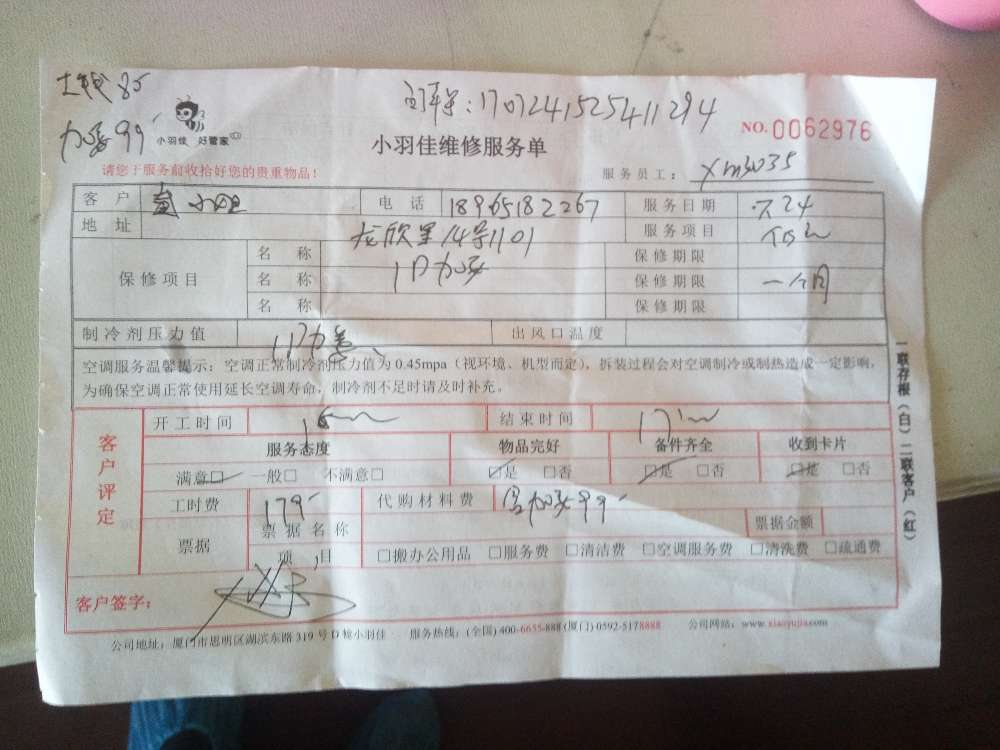 85
加氨99
订单号:170724152541294
小羽佳 好管家
小羽佳维修服务单
NO.0062976
请您于服务前收拾好您的贵重物品!
服务员工: xm3035
客户 小姐 电话 18965182267 服务日期 7.24
地址 龙欣里14号1101 服务项目
保修项目 名称 1P加氨 保修期限
名称 保修期限 一个月
名称 保修期限
制冷剂压力值 出风口温度
空调服务温馨提示: 空调正常制冷剂压力值为 0.45mpa (视环境、机型而定), 拆装过程会对空调制冷或制热造成一定影响,
为确保空调正常使用延长空调寿命, 制冷剂不足时请及时补充。
客户评定
开工时间 结束时间
服务态度 物品完好 备件齐全 收到卡片
满意□ 一般□ 不满意□ □是 □否 □是 □否 □是 □否
工时费 179 代购材料费 99
票据 票据名称 票据金额
项目 □搬办公用品 □服务费 □清洁费 □空调服务费 □清洗费 □疏通费
客户签字:
公司地址: 厦门市思明区湖滨东路 319 号 D 幢小羽佳 服务热线: (全国) 400-6655-888 (厦门) 0592-5178888 公司网站: www.xiaoyujia.com
一联存根(白)二联客户(红)